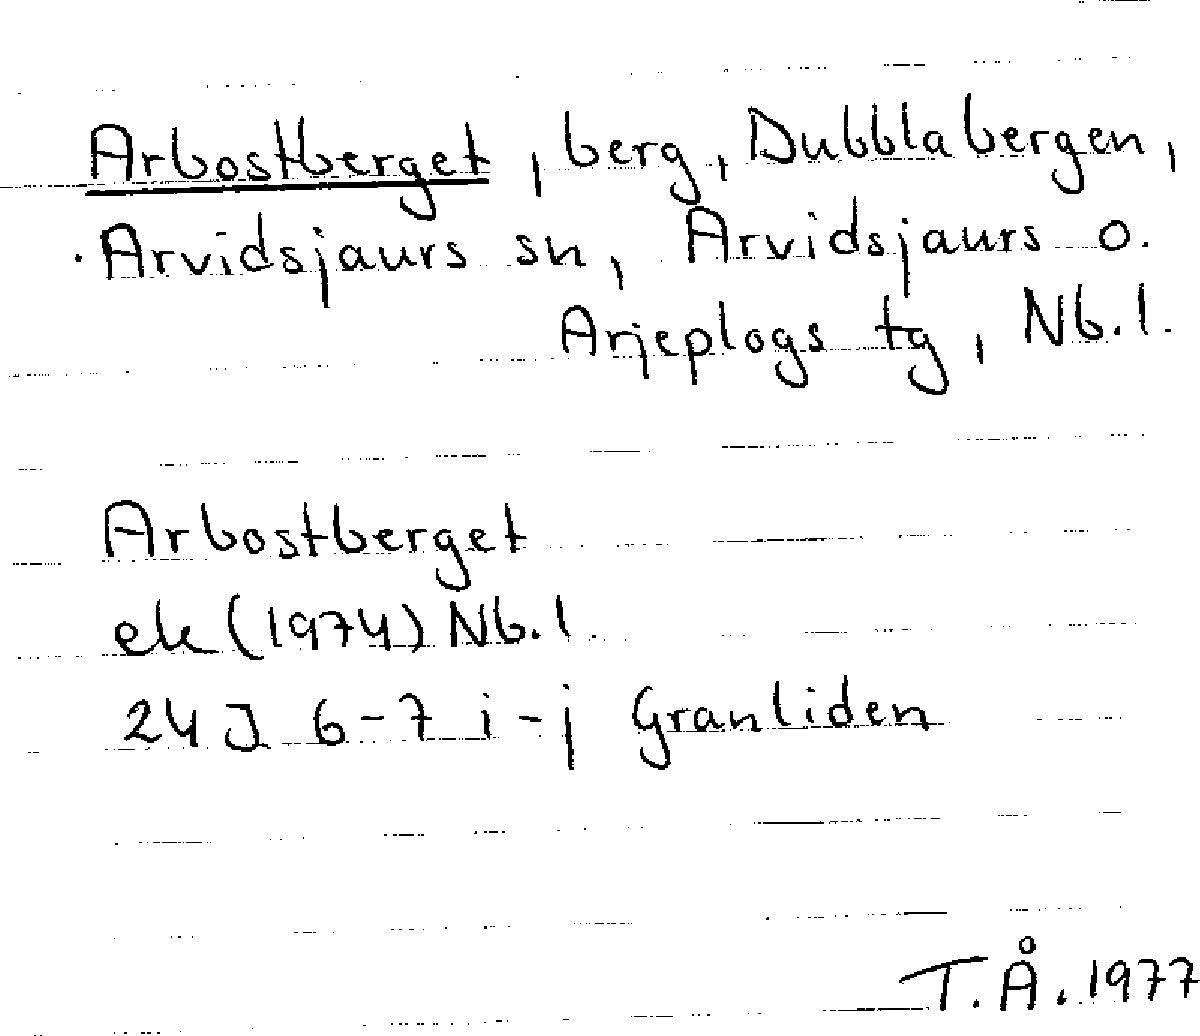 Arbostberget, berg, Dubblabergen,
Arvidsjaurs sn, Arvidsjaurs o.
Arjeplogs tg, Nb.l.
Arbostberget
ek (1974) Nb.l
24J 6-7 i-j Granliden
T.Å. 1977